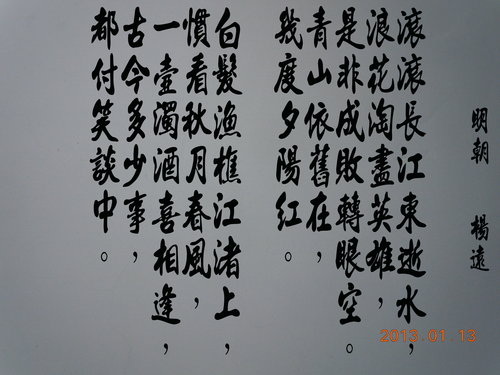 明朝 楊遠
滾滾長江東逝水，
浪花淘盡英雄，
是非成敗轉眼空。
青山依舊在，
幾度夕陽紅。
白髮漁樵江渚上，
慣看秋月春風，
一壺濁酒喜相逢，
古今多少事，
都付笑談中。
2013.01.13